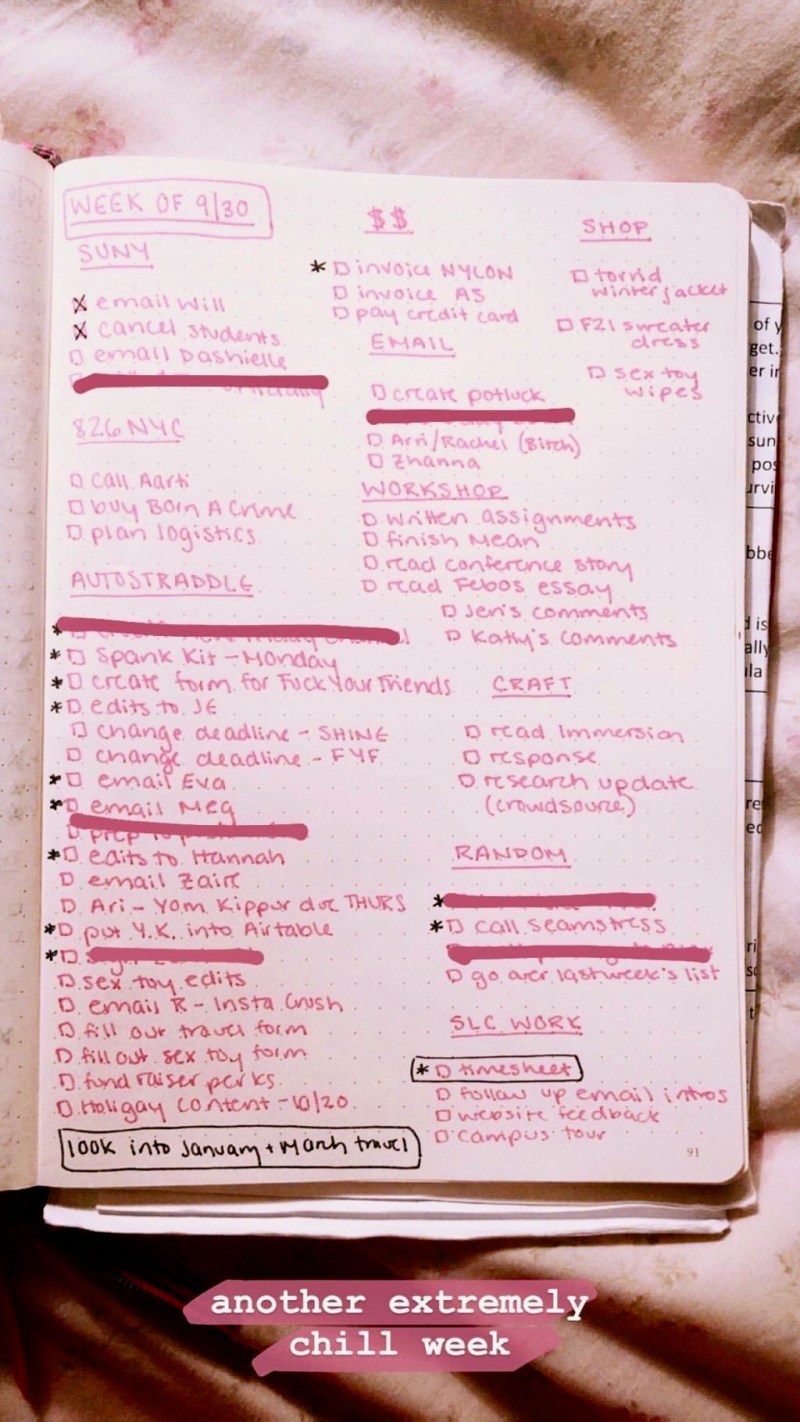 WEEK OF 9/30
SUNY
X email Will
X cancel students
email Dashielle
826 NYC
call Aarti
buy Born A Crime
plan logistics
AUTOSTRADDLE
* Spank Kit - Monday
* create form for Fuck Your Friends
* edits to JE
change deadline - SHINE
change deadline - FYF
* email Eva
* email Meg
prep
* edits to Hannah
email Zaire
Ari - Yom Kippur due THURS
* put Y.K. into Airtable
*
sex toy edits
email R - Insta Crush
fill out travel form
fill out sex toy form
fundraiser perks
Holigay content - 10/20
look into January + March travel
$$
* invoice NYLON
invoice AS
pay credit card
EMAIL
create potluck
Arri/Rachel (Bitch)
Zhanna
WORKSHOP
written assignments
finish Mean
read conference story
read Febos essay
Jen's comments
Kathy's comments
CRAFT
read Immersion
response
research update
(crowdsource)
RANDOM
*
* call seamstress
go over last week's list
SLC WORK
* timesheet
follow up email intros
website feedback
campus tour
91
SHOP
torrid
winter jacket
F21 sweater
dress
sex toy
wipes
of y
get.
er in
ctiv
sun
pos
urvi
bbe
d is
ally
ula
re
ec
ri
another extremely
chill week